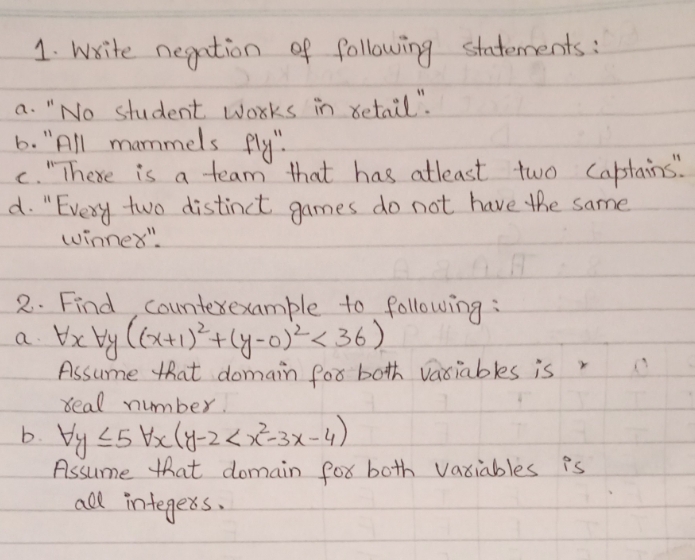 1. Write negation of following statements:
a. "No student works in retail".
b. "All mammels fly".
c. "There is a team that has atleast two captains".
d. "Every two distinct games do not have the same
winner".
2. Find counterexample to following:
a. ∀x ∀y ((x+1)²+(y-0)² < 36)
Assume that domain for both variables is
real number.
b. ∀y ≤5 ∀x(y-2 < x²-3x-4)
Assume that domain for both variables is
all integers.